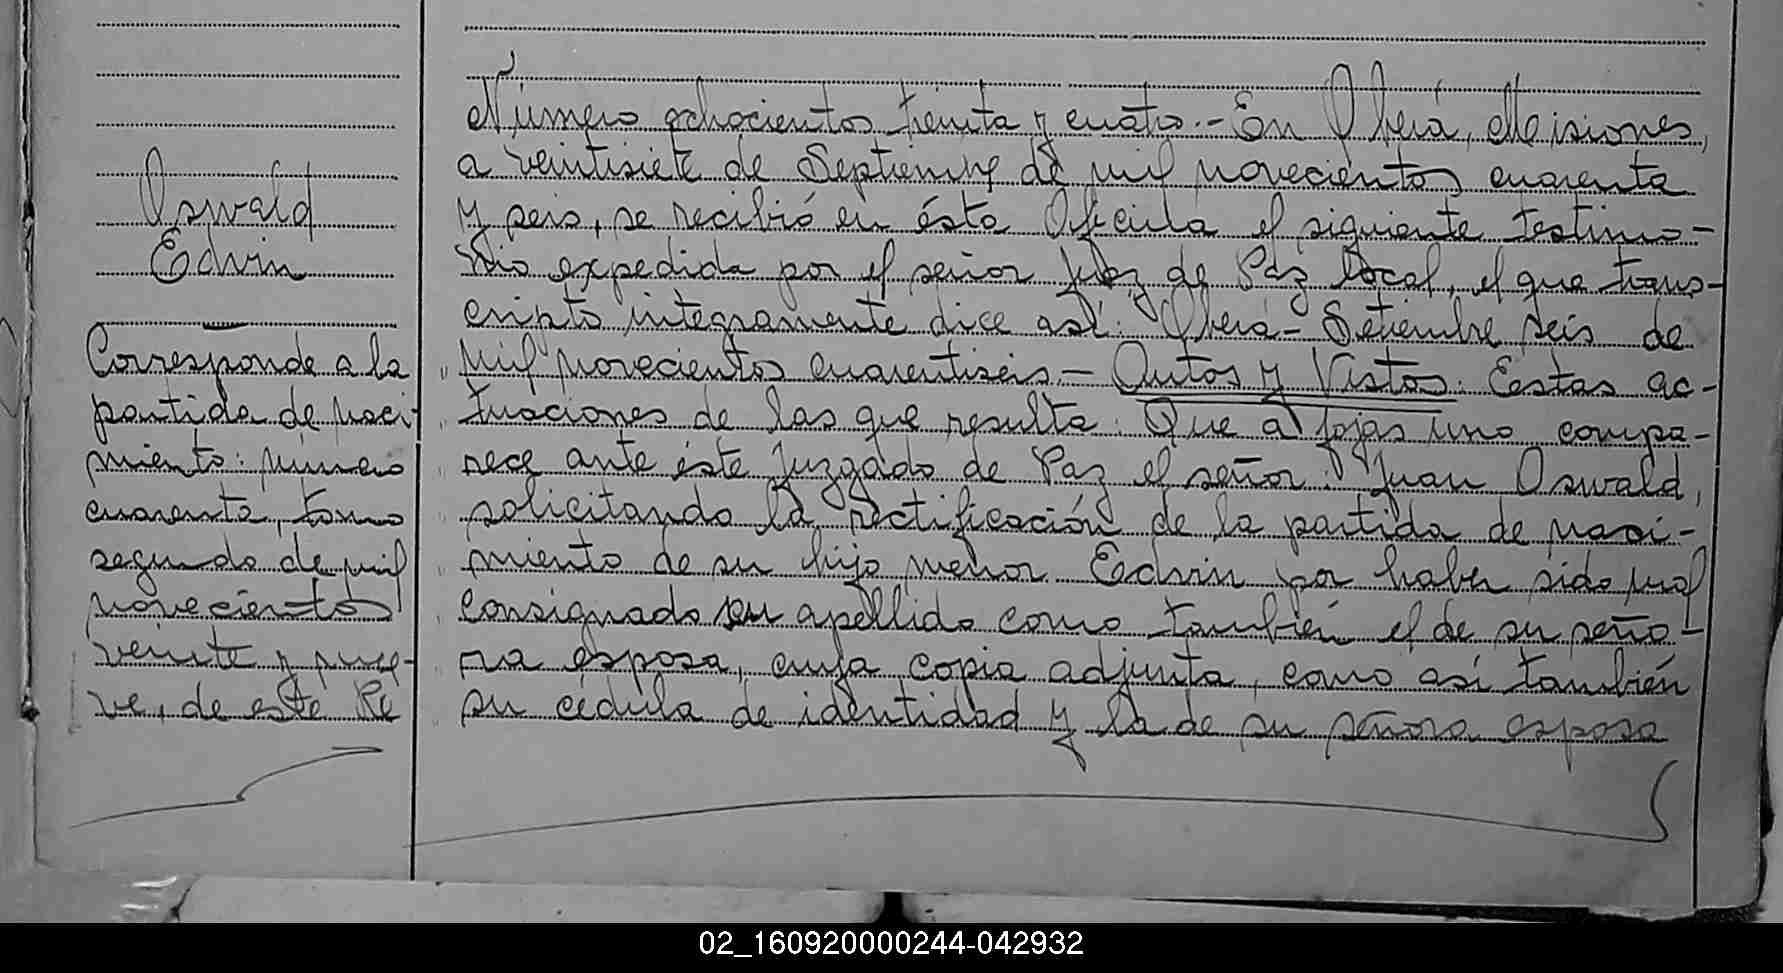 Oswald
Edwin
Corresponde a la
partida de naci-
miento: número
cuarenta, tomo
segundo de mil
novecientos
veinte y nue-
ve, de este Re
Número ochocientos treinta y cuatro.- En Oberá, Misiones,
a veintisiete de Septiembre de mil novecientos cuarenta
y seis, se recibió en ésta Oficina el siguiente testimo-
nio expedida por el señor Juez de Paz local, el que trans-
cripto integramente dice así: Oberá - Setiembre seis de
mil novecientos cuarentiseis.- Autos y Vistos: Estas ac-
tuaciones de las que resulta: Que a fojas uno compa-
rece ante éste Juzgado de Paz el señor: Juan Oswald,
solicitando la rectificación de la partida de naci-
miento de su hijo menor Edwin por haber sido mal
consignado su apellido como también el de su seño-
ra esposa, cuya copia adjunta, como así también
su cédula de identidad y la de su señora esposa
02_160920000244-042932